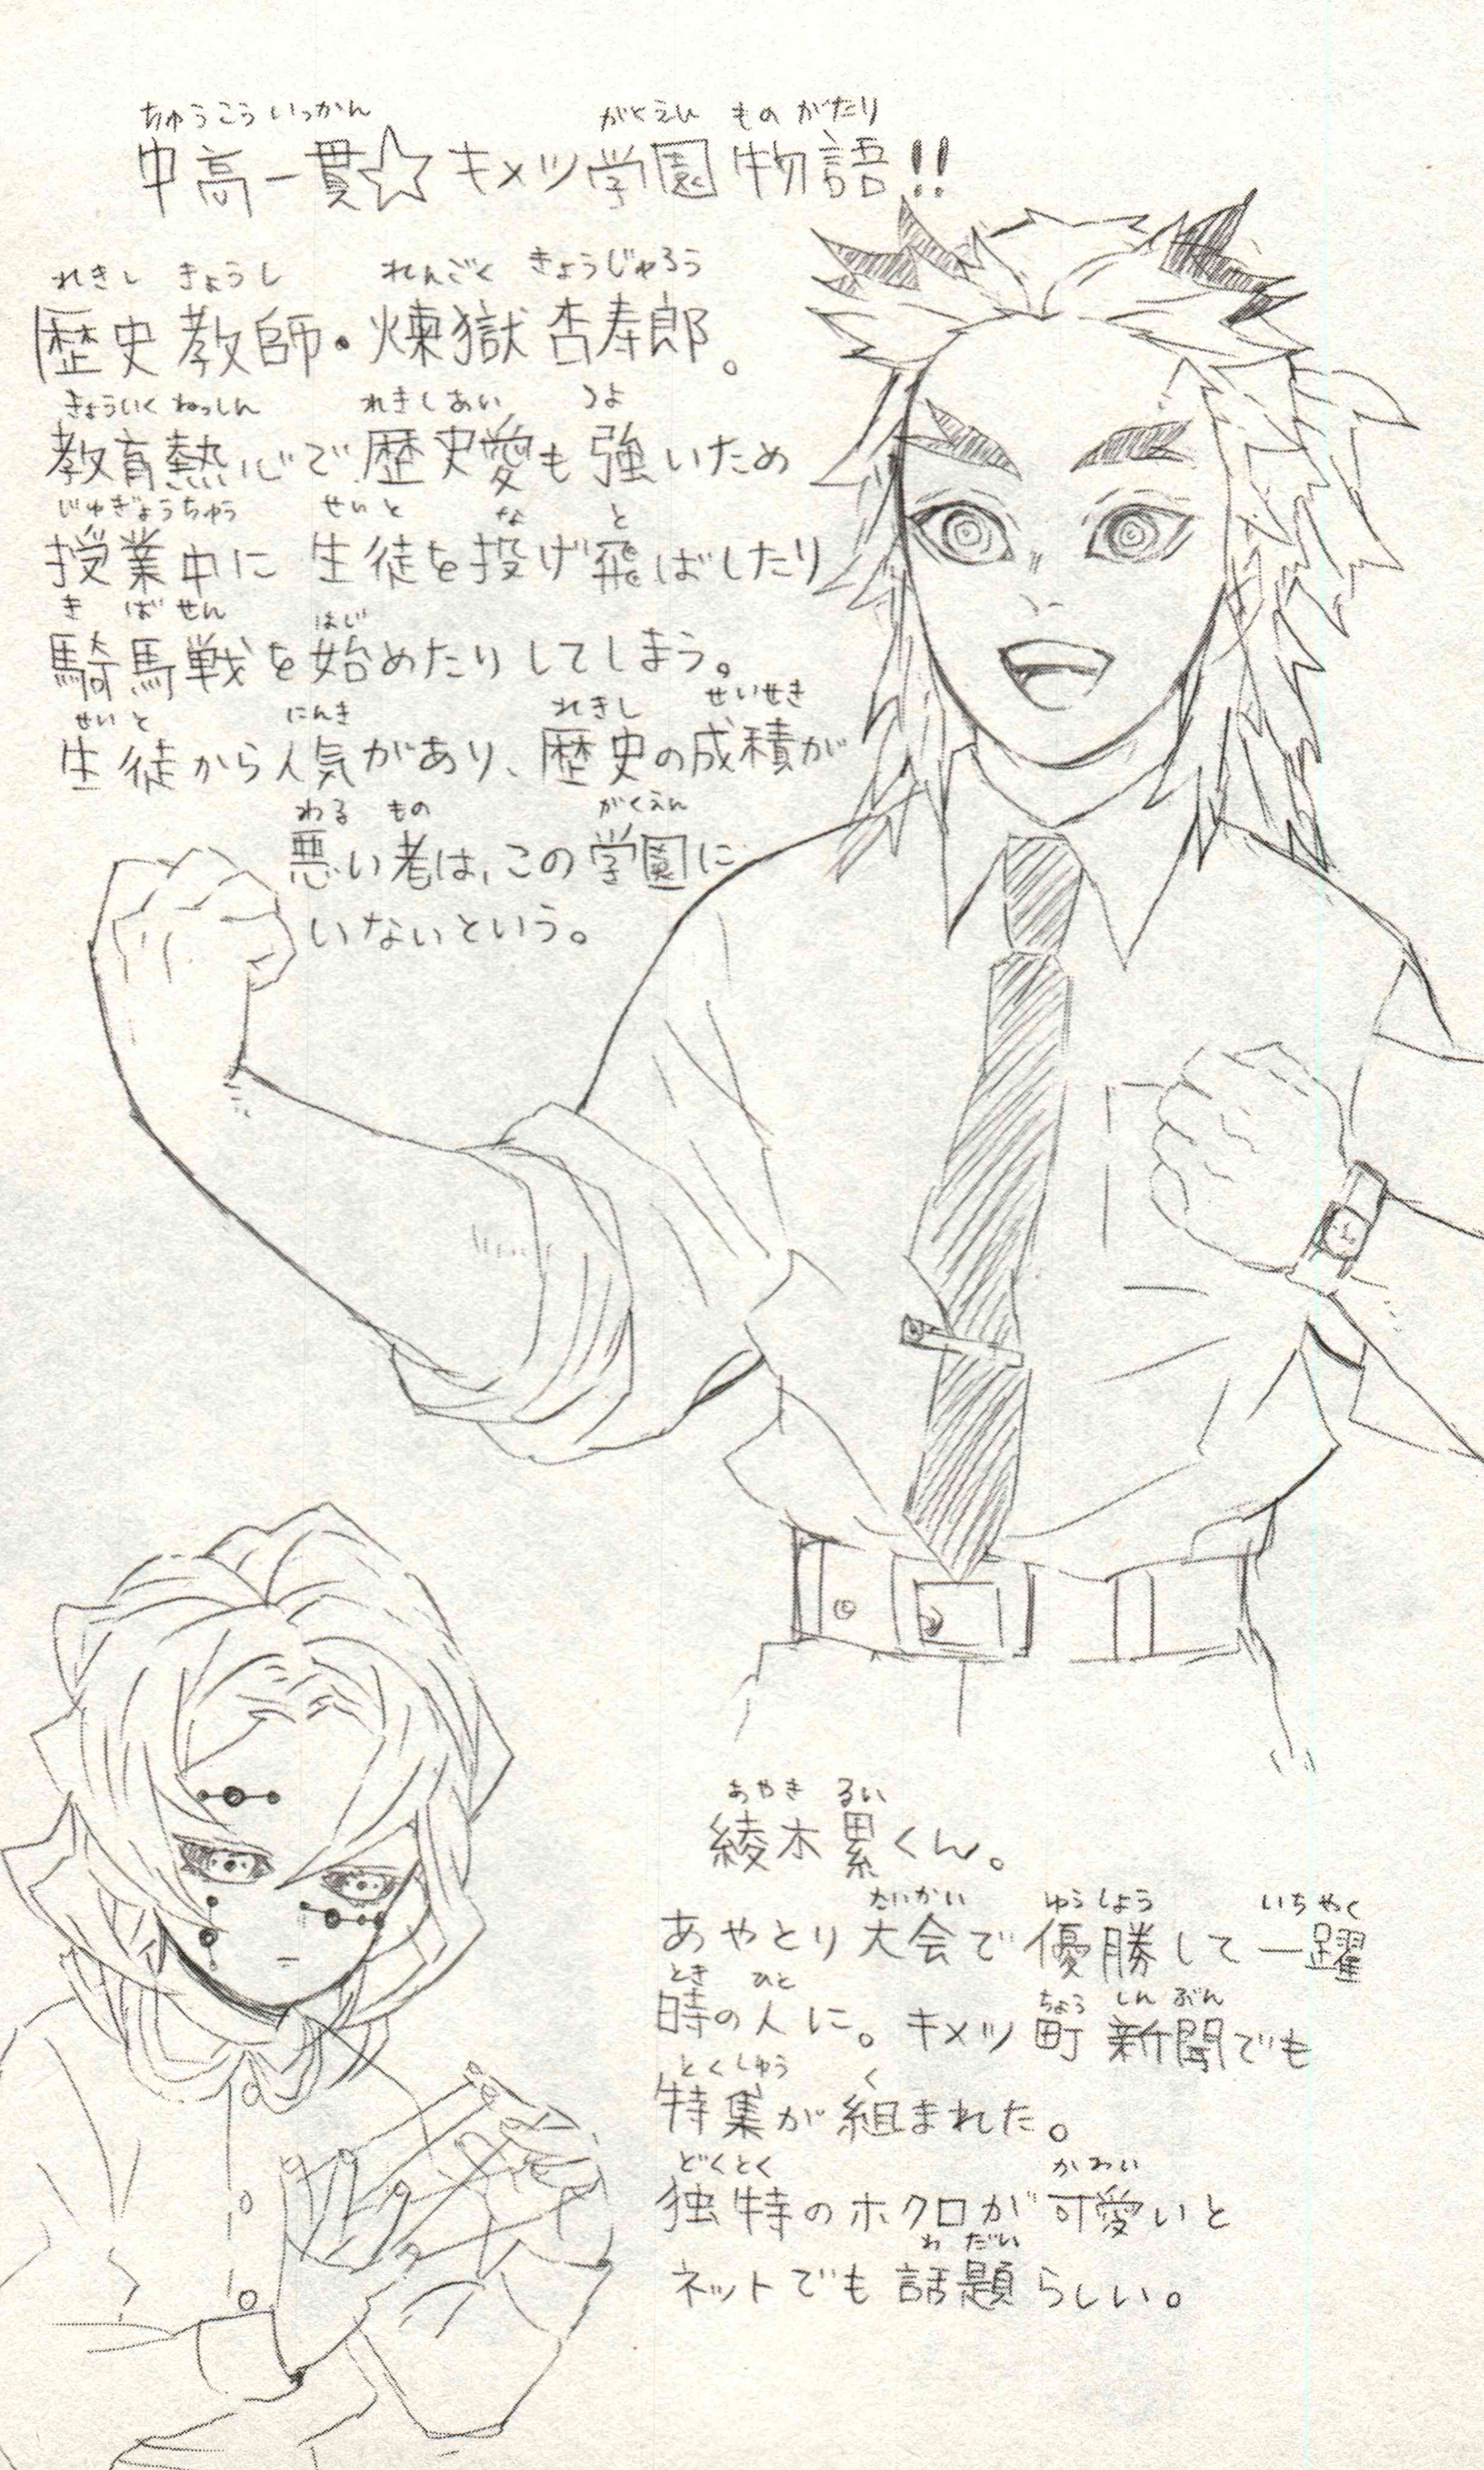 ちゅうこういっかん がくえん ものがたり
中高一貫☆キメツ学園物語!!
れきし きょうし れんごく きょうじゅろう
歴史教師・煉獄杏寿郎。
きょういくねっしん れきしあい つよ
教育熱心で歴史愛も強いため
じゅぎょうちゅう せいと な と
授業中に生徒を投げ飛ばしたり
きばせん はじ
騎馬戦を始めたりしてしまう。
せいと にんき れきし せいせき
生徒から人気があり、歴史の成績が
わる もの がくえん
悪い者は、この学園に
いないという。
あやき るい
綾木累くん。
たいかい ゆうしょう いちやく
あやとり大会で優勝して一躍
とき ひと ちょう しんぶん
時の人に。キメツ町新聞でも
とくしゅう く
特集が組まれた。
どくとく かわい
独特のホクロが可愛いと
わだい
ネットでも話題らしい。